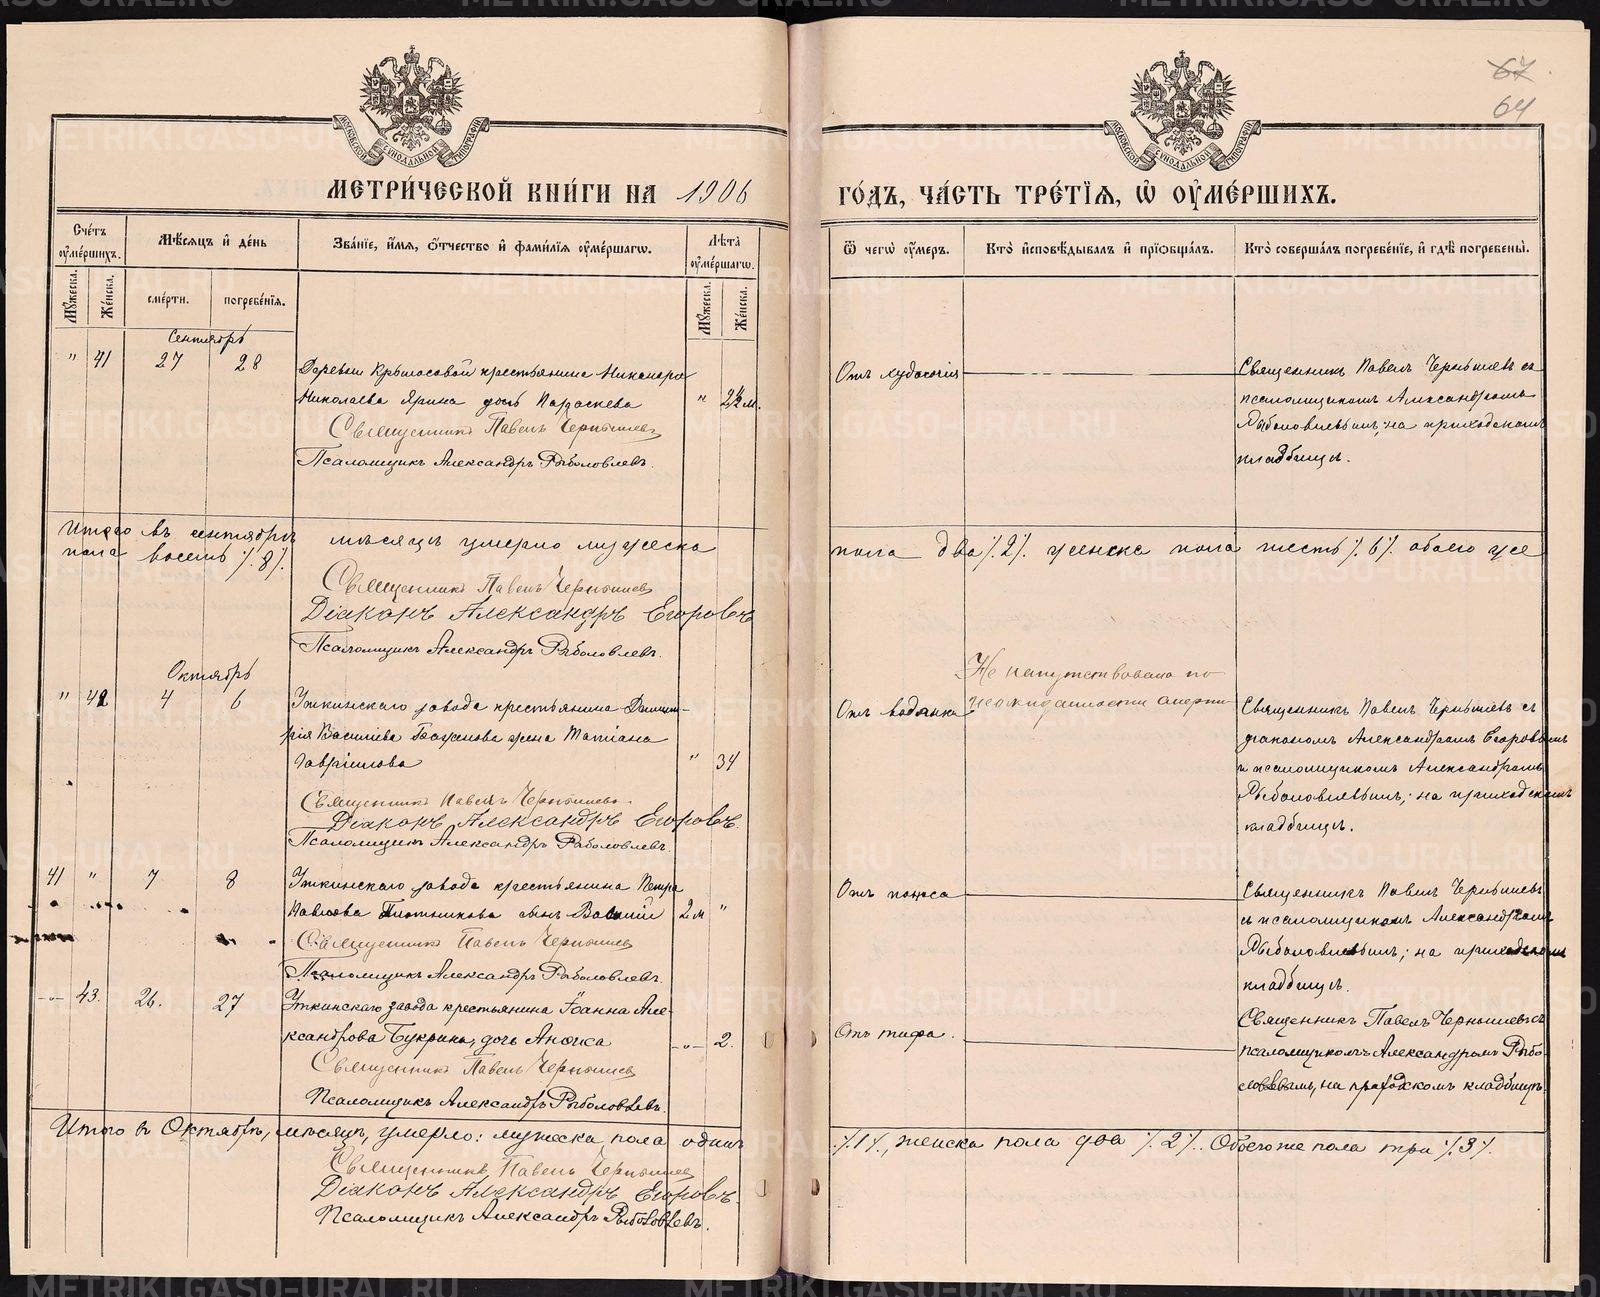 67
64
МЕТРИ́ЧЕСКОЙ КНИ́ГИ НА 1906
ГО́ДЪ, ЧА́СТЬ ТРЕ́ТІЯ, Ѡ ОУМЕ́РШИХЪ.
Сче́тъ оуме́ршихъ.
Мѣ́сяцъ и де́нь
Зва́ніе, и́мя, о́тчество и фами́лія оуме́ршагѡ.
Лѣ́та оуме́ршагѡ.
Ѿ чегѡ̀ оу́меръ.
Кто̀ исповѣ́дывалъ и пріѡбща́лъ.
Кто̀ соверша́лъ погребе́ніе, и гдѣ̀ погребены̀.
Мꙋ́жеска.
Же́нска.
сме́рти.
погребе́нія.
Мꙋ́жеска.
Же́нска.
Сентябрь
" 41 27 28
Деревни Крыласовой крестьянина Никанора
Николаева Ярина дочь Параскева
"
Священникъ Павелъ Чернышевъ
Псаломщикъ Александръ Рыболовлевъ.
Отъ худосочія
Священникъ Павелъ Чернышевъ съ
псаломщикомъ Александромъ
Рыболовлевымъ; на приходскомъ
кладбищѣ.
Итого въ сентябрѣ мѣсяцѣ умерло мужеска
пола два /.2/. женска пола шесть /.6/. обоего же
пола восемь /.8/.
Священникъ Павелъ Чернышевъ
Діаконъ Александръ Егоровъ
Псаломщикъ Александръ Рыболовлевъ.
Октябрь
" 42 4 6
Уткинскаго завода крестьянина Димит-
рія Василіева Баженова жена Татіана
Гавріилова
" 34
Священникъ Павелъ Чернышевъ
Діаконъ Александръ Егоровъ.
Псаломщикъ Александръ Рыболовлевъ.
Отъ водянки
Не напутствована по
неожиданности смерти
Священникъ Павелъ Чернышевъ съ
діакономъ Александромъ Егоровымъ
и псаломщикомъ Александромъ
Рыболовлевымъ; на приходскомъ
кладбищѣ.
41 " 7 8
Уткинскаго завода крестьянина Петра
Павлова Плотникова сынъ Василій
2 м "
Священникъ Павелъ Чернышевъ
Псаломщикъ Александръ Рыболовлевъ.
Отъ поноса
Священникъ Павелъ Чернышевъ
съ псаломщикомъ Александромъ
Рыболовлевымъ; на приходскомъ
кладбищѣ.
-"- 43. 26. 27
Уткинскаго завода крестьянина Іоанна Але-
ксандрова Букрина, дочь Анѳиса
-"- 2.
Священникъ Павелъ Чернышевъ
Псаломщикъ Александръ Рыболовлевъ.
Отъ тифа.
Священникъ Павелъ Чернышевъ съ
псаломщикомъ Александромъ Рыбо-
ловлевымъ, на приходскомъ кладбищѣ.
Итого въ Октябрѣ, мѣсяцѣ, умерло: мужеска пола одинъ
/.1/., женска пола два /.2/.. Обоего же пола три /.3/.
Священникъ Павелъ Чернышевъ
Діаконъ Александръ Егоровъ.
Псаломщикъ Александръ Рыболовлевъ.
METRIKI.GASO-URAL.RU